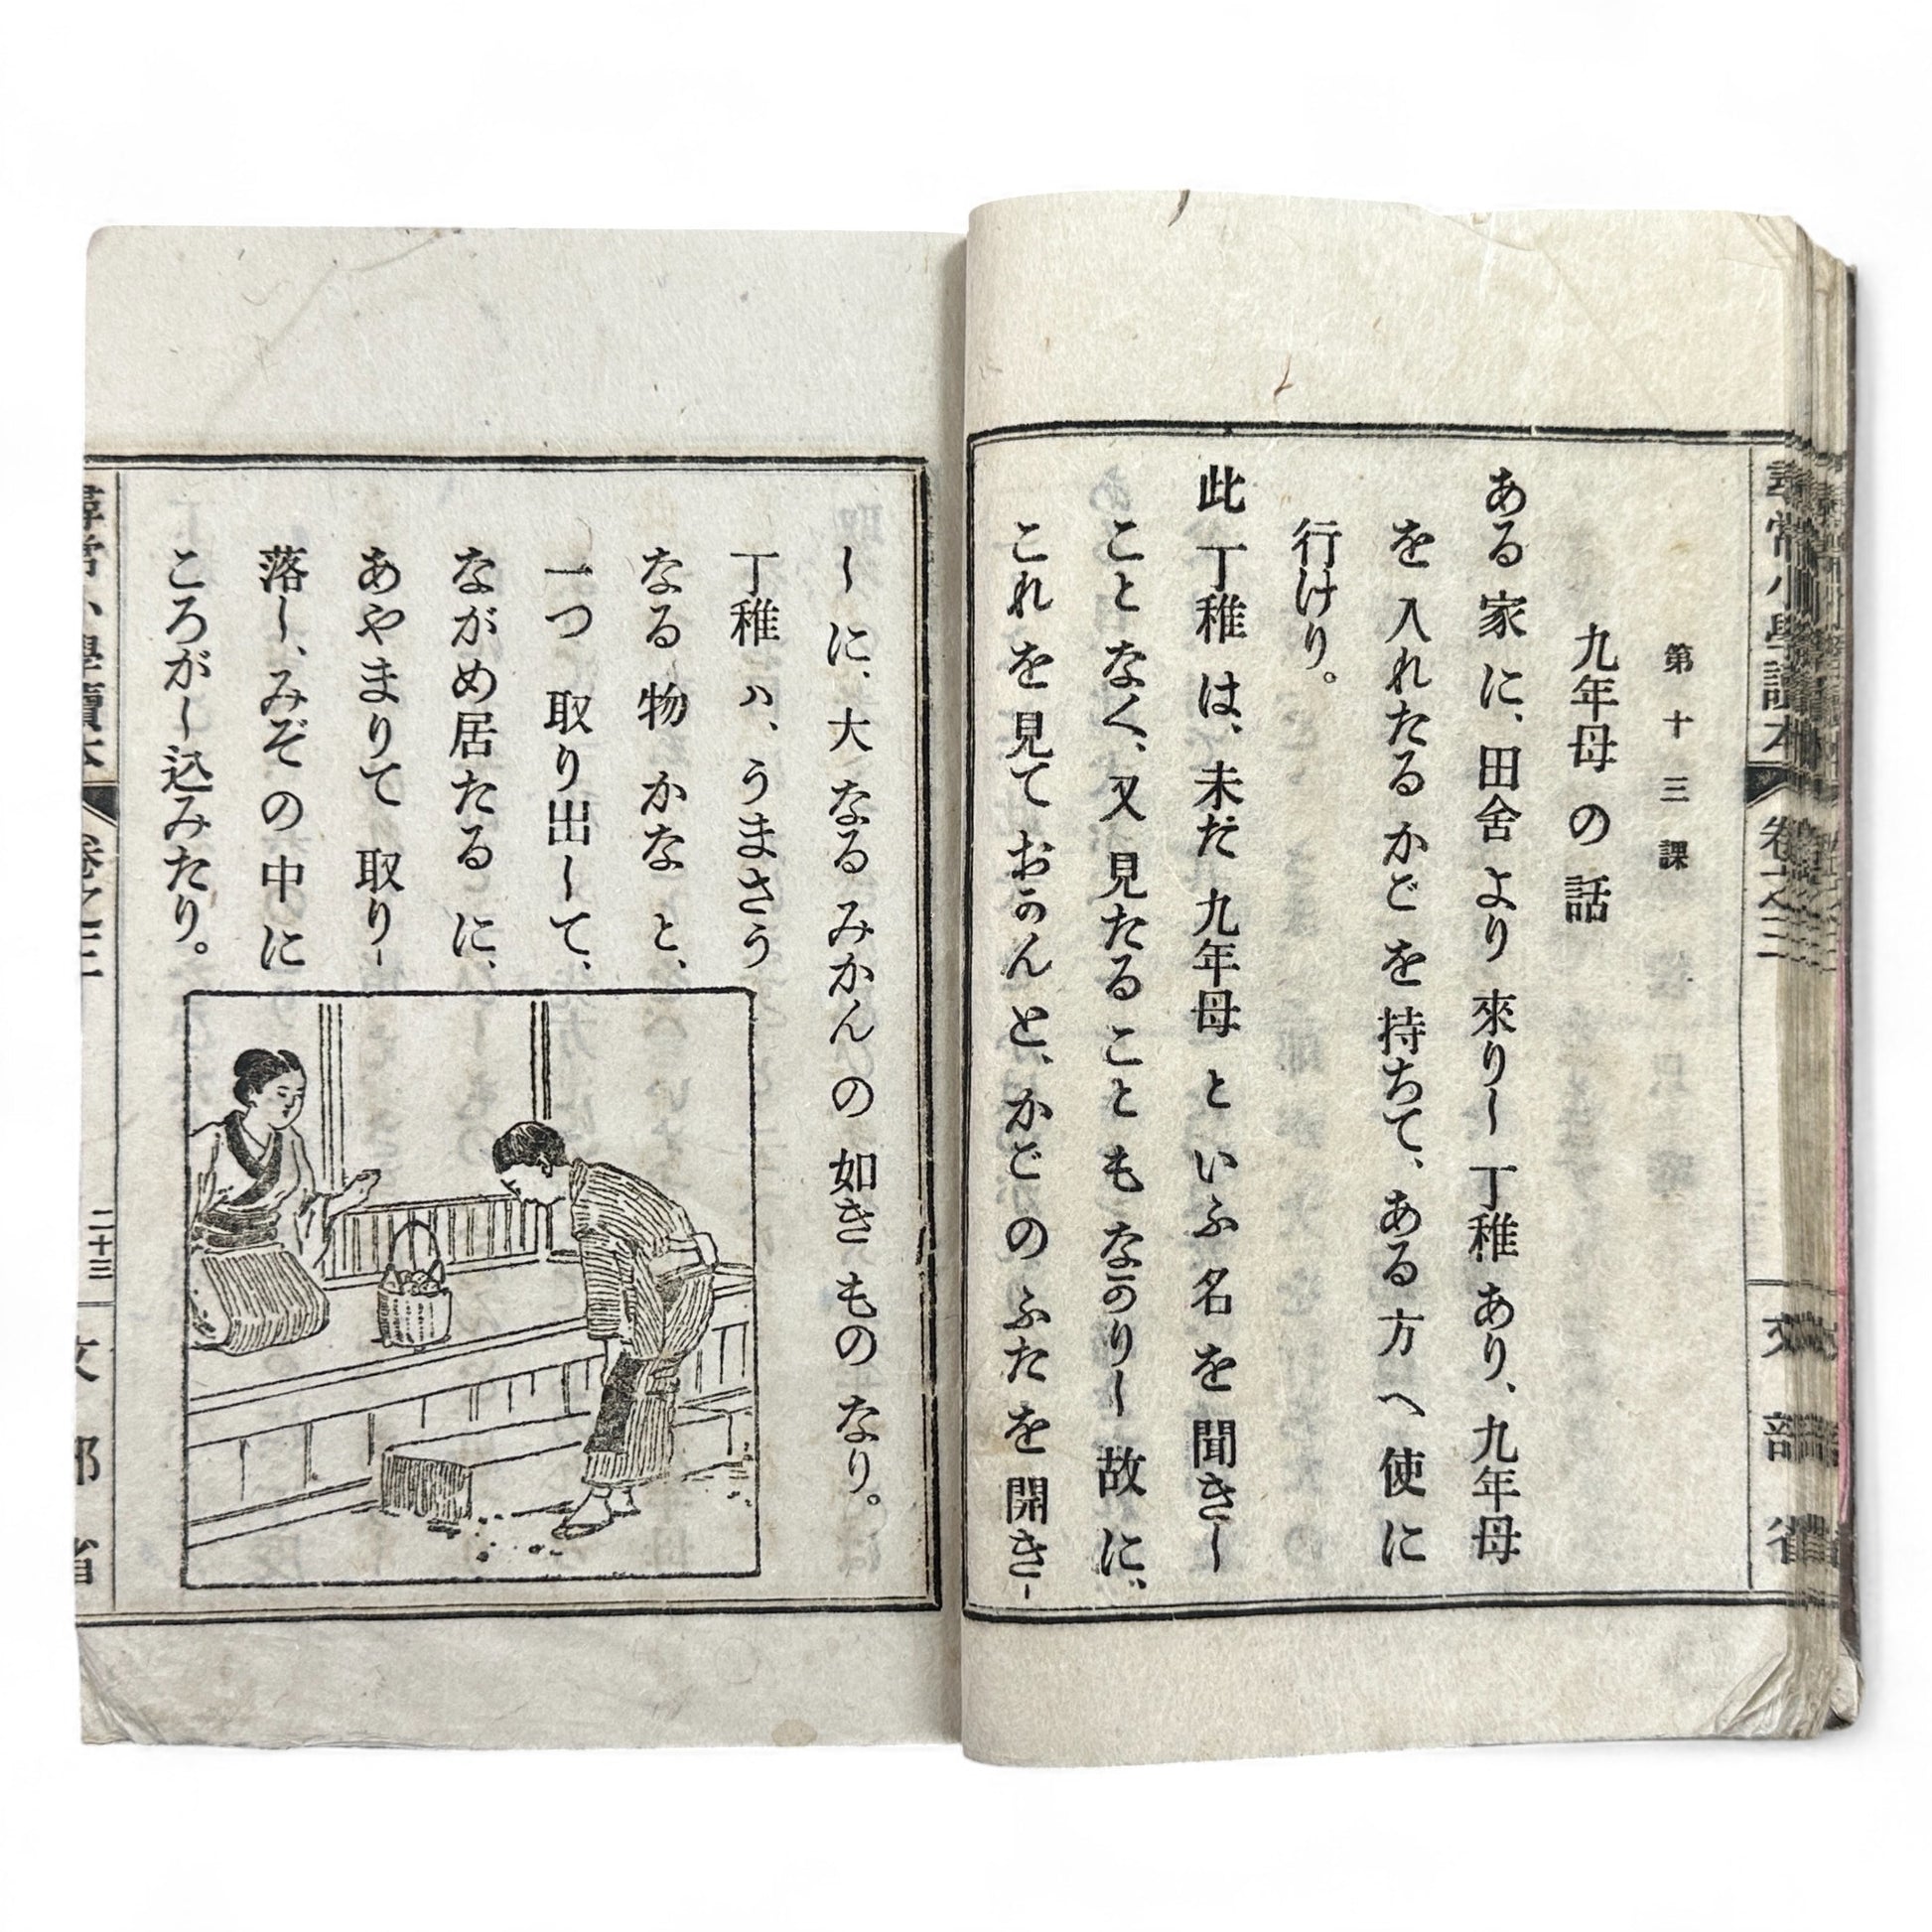 第十三課
九年母の話
ある家に、田舎より來りし丁稚あり、九年母
を入れたるかごを持ちて、ある方へ使に
行けり。
此丁稚は、未だ九年母といふ名を聞きし
ことなく、又見たることもなかりし故に、
これを見ておかんと、かごのふたを開き-
しに、大なるみかんの如きものなり。
丁稚ハ、うまさう
なる物かなと、
一つ取り出して、
ながめ居たるに、
あやまりて取り-
落し、みぞの中に
ころがし込みたり。
尋常小學讀本
卷之三
二十三
文部省